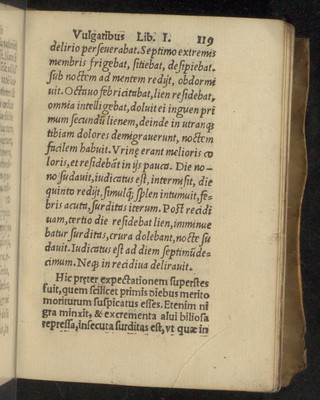 Vulgatibus Lib. I. 119
delirio perseuerabat. Septimo extremis
membris frigebat, sitiebat, desipiebat.
sub noctem ad mentem redijt, obdormi
uit. Octauo febricitabat, lien residebat,
omnia intelligebat, doluit ei inguen pri
mum secundū lienem, deinde in utranq;
tibiam dolores demigrauerunt, noctem
facilem habuit. Vrinę erant melioris co
loris, et residebāt in ijs pauca. Die no-
no sudauit, iudicatus est, intermisit, die
quinto redijt, simulq; splen intumuit, fe-
bris acuta, surditas iterum. Post recidi
uam, tertio die residebat lien, imminue
batur surditas, crura dolebant, nocte su
dauit. Iudicatus est ad diem septimūde-
cimum. Neq; in recidiua delirauit.
Hic pręter expectationem superstes
fuit, quem scilicet primis diebus merito
moriturum suspicatus esses. Etenim ni
gra minxit, & excrementa alui biliosa
repressa, insecuta surditas est, ut quæ in